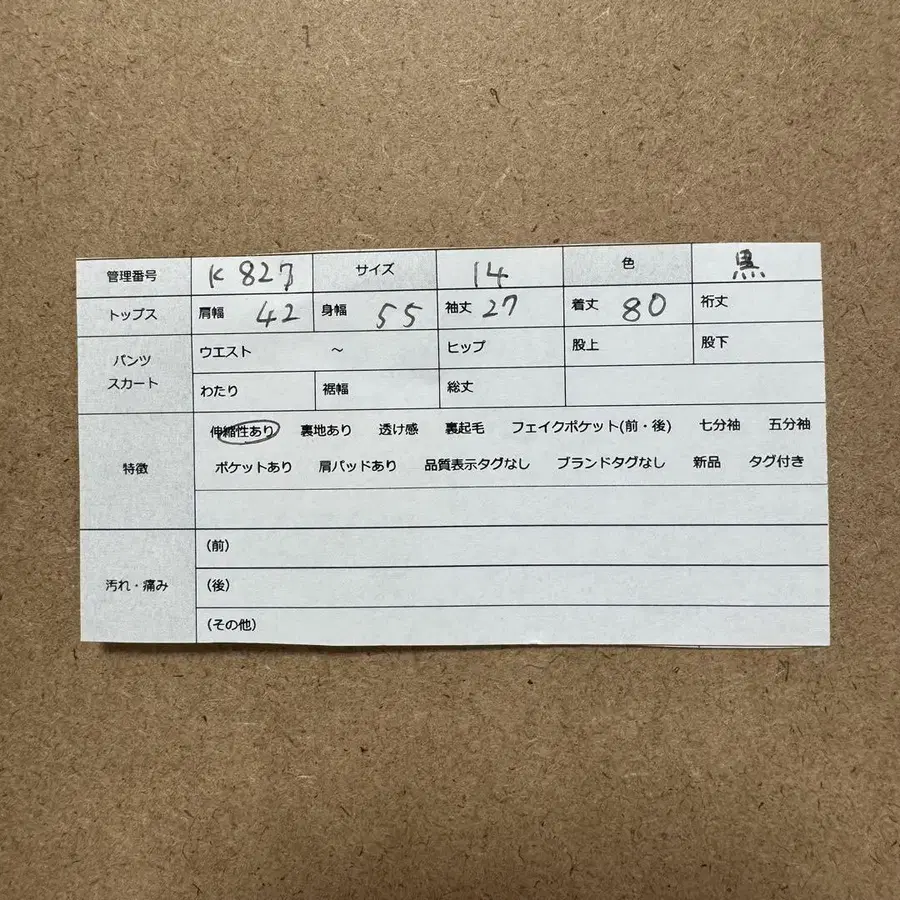 管理番号 K 827 サイズ 14 色 黒
トップス 肩幅 42 身幅 55 袖丈 27 着丈 80 裄丈
パンツ スカート ウエスト ～ ヒップ 股上 股下
わたり 裾幅 総丈
特徴 伸縮性あり 裏地あり 透け感 裏起毛 フェイクポケット(前・後) 七分袖 五分袖
ポケットあり 肩パッドあり 品質表示タグなし ブランドタグなし 新品 タグ付き
汚れ・痛み (前)
(後)
(その他)